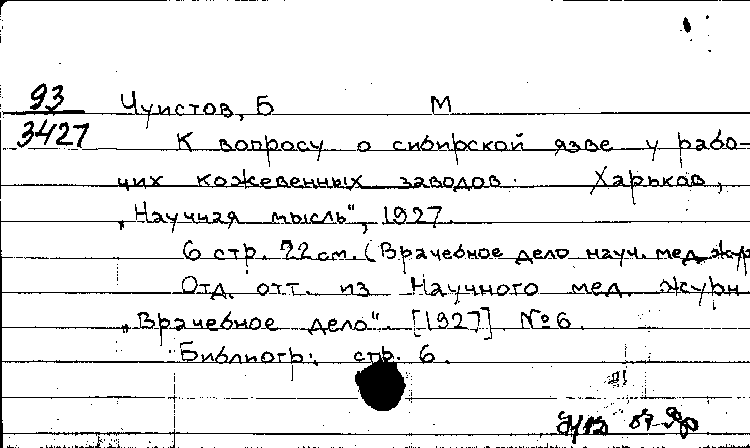 93
3427
Чуистов, Б М
К вопросу о сибирской язве у рабо-
чих кожевенных заводов. Харьков,
„Научная мысль", 1927.
6 стр. 22 см. (Врачебное дело науч. мед. жур
Отд. отт. из Научного мед. журн
„Врачебное дело". [1927] № 6.
Библиогр: стр. 6.